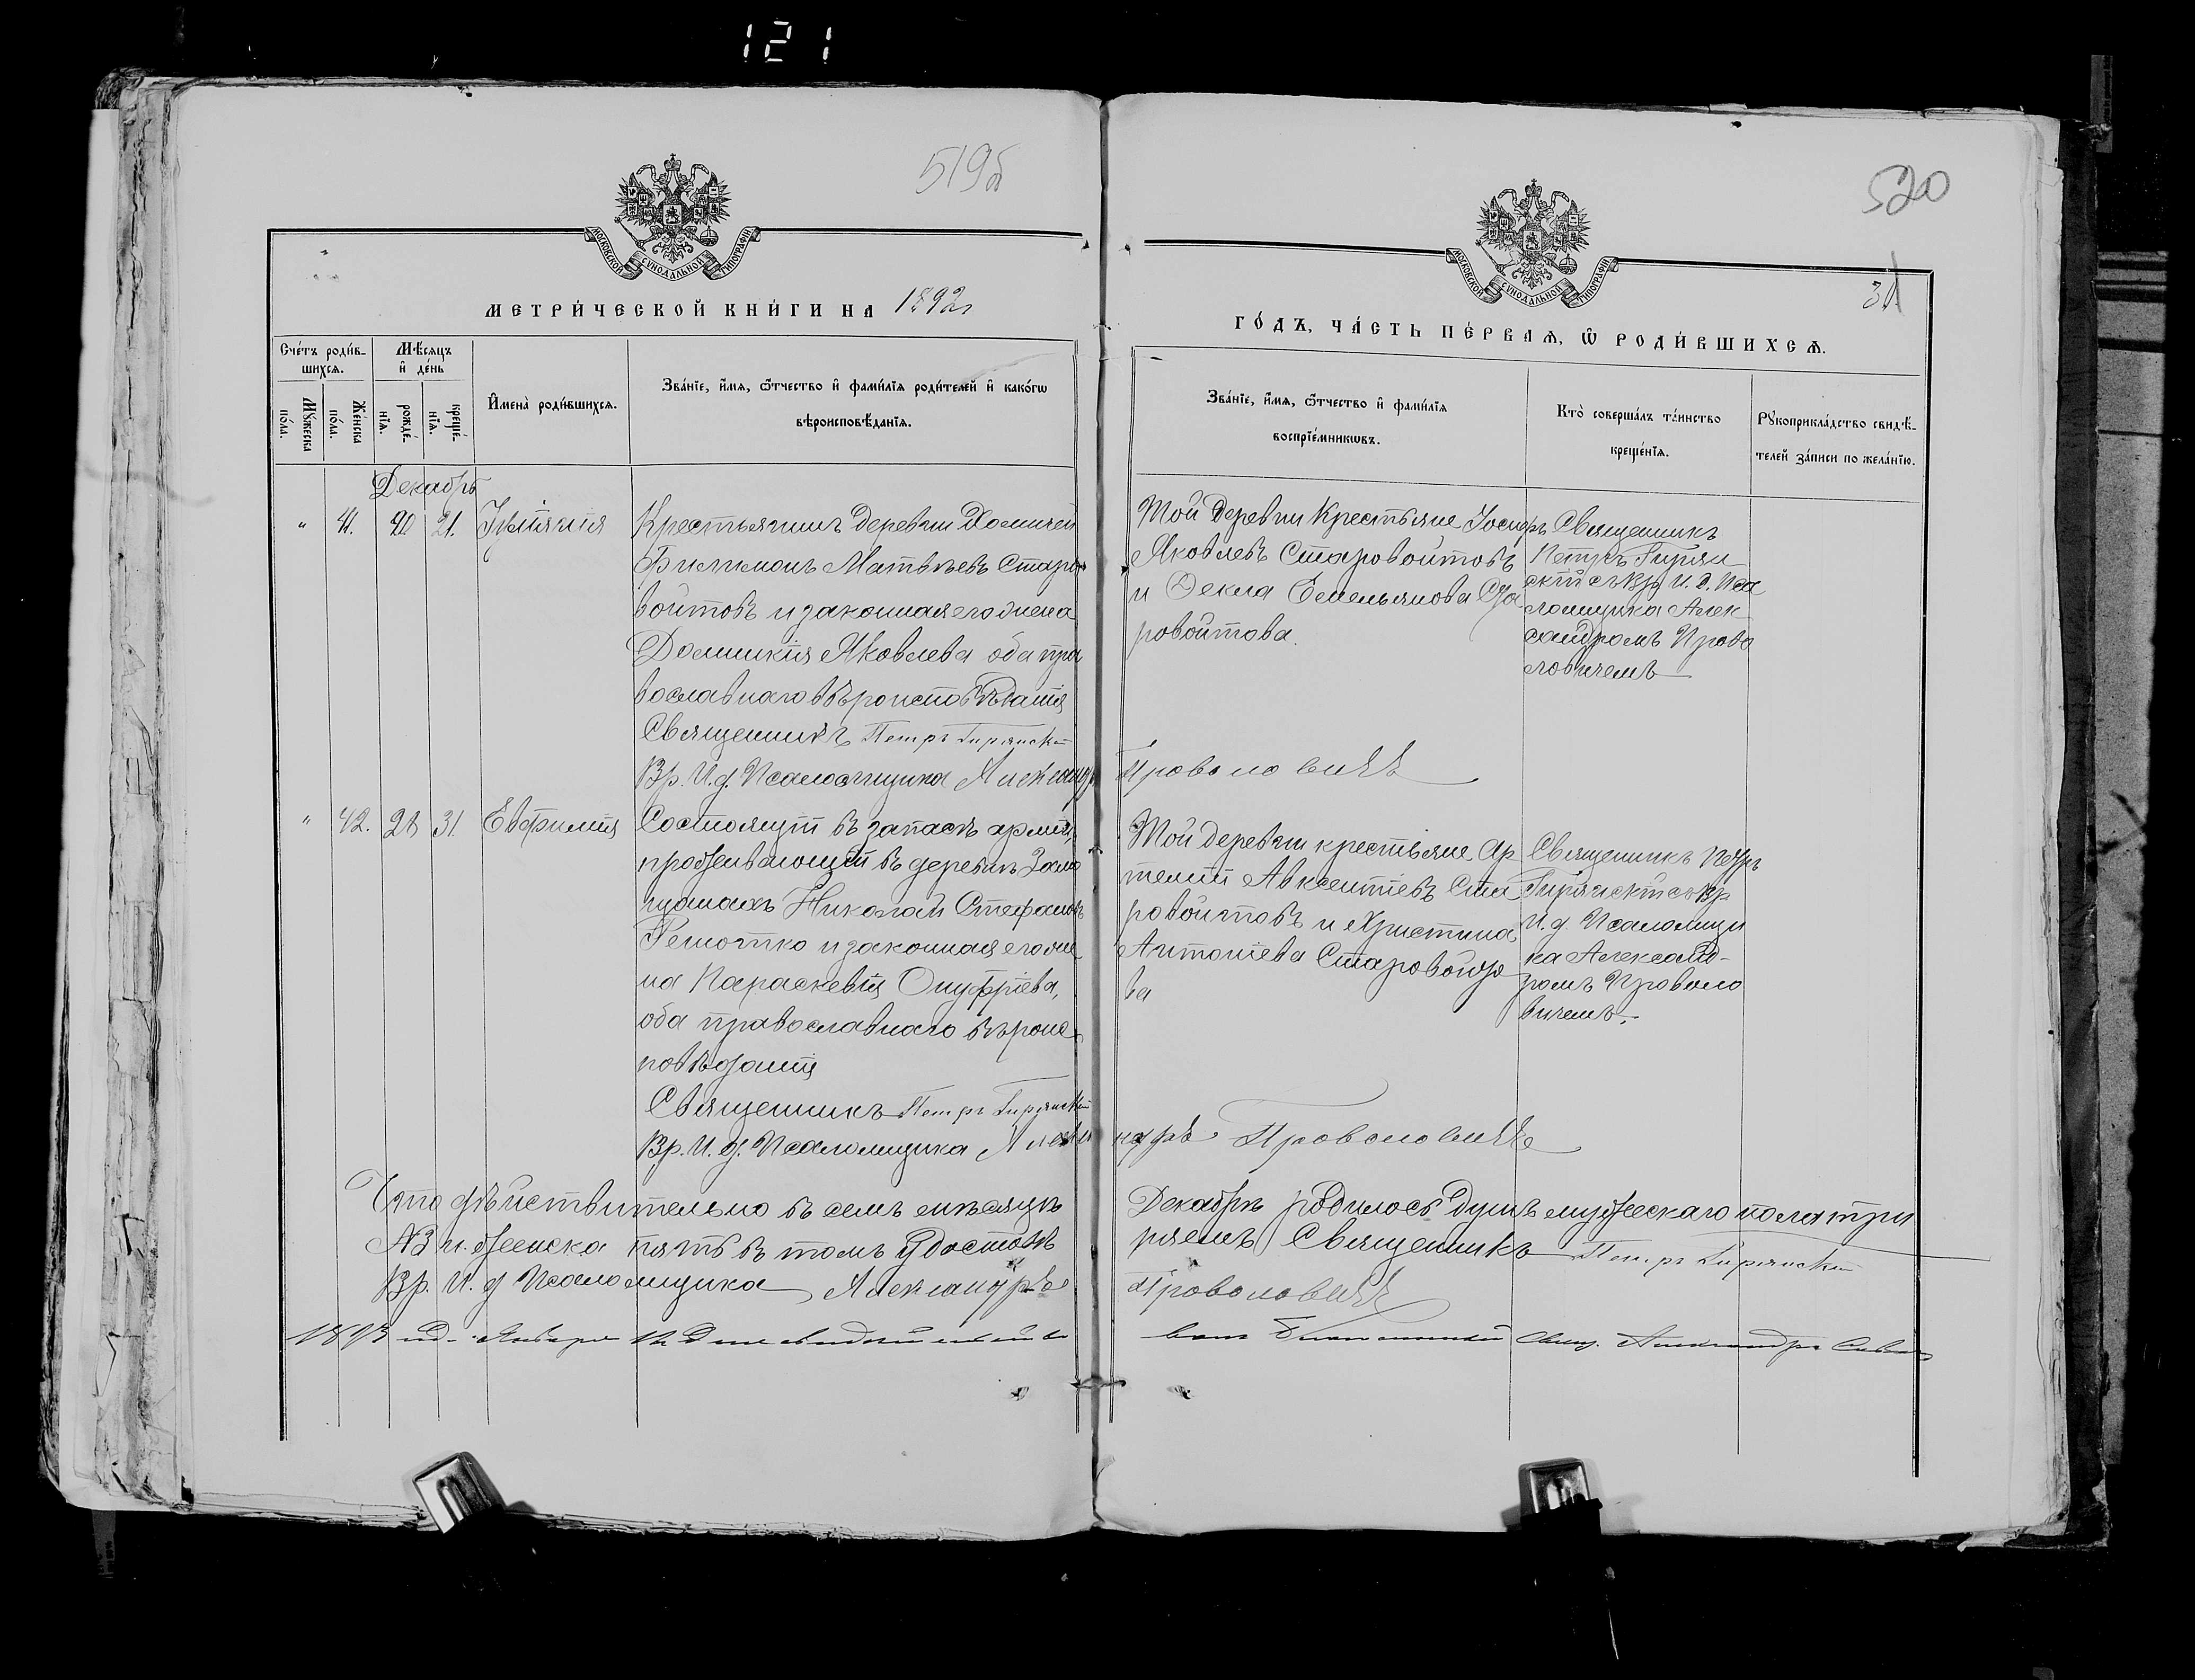 121
519б
МОСКОВСКОЙ СѴНОДАЛЬНОЙ ТИПОГРАФІИ
МЕТРИ́ЧЕСКОЙ КНИ́ГИ НА 1892г
Сче́тъ роди́в-
шихсѧ.
Мѣ́сѧцъ
и҆ де́нь
Мꙋ́жеска
по́ла.
Же́нска
по́ла.
рожде́-
нїѧ.
креще́-
нїѧ.
И҆мена̀ роди́вшихсѧ.
Зва́нїе, и҆́мѧ, ѻ҆́тчество и҆ фами́лїѧ роди́телей и҆ како́гѡ
вѣроисповѣ́данїѧ.
Декабрь
" 41. 20. 21. Іуліанія
Крестьянинъ деревни
Филимонъ Матвѣевъ Старо
войтовъ и законная его жена
Домникія Яковлева оба пра
вославнаго вѣроисповѣданія
Священникъ Петръ
Вр. И. д. Псаломщика Александръ
" 42. 28 31. Евфимія
Состоящій въ запасѣ арміи,
проживающій въ деревнѣ
Николай Стефановъ
и законная его же
на Параскевія Онуфріева,
оба православнаго вѣроис
повѣданія
Священникъ Петръ
Вр. И. д. Псаломщика
Что дѣйствительно въ семъ мѣсяцѣ
№3 и женска пять въ томъ удостовѣ
Вр. И. д Псаломщика Александръ
1893 года Января 12 дня
520
МОСКОВСКОЙ СѴНОДАЛЬНОЙ ТИПОГРАФІИ
31
ГО́ДЪ, ЧА́СТЬ ПЕ́РВАѦ, Ѡ҆ РОДИ́ВШИХСѦ.
Зва́нїе, и҆́мѧ, ѻ҆́тчество и҆ фами́лїѧ
воспрїе́мникѡвъ.
Кто̀ соверша́лъ та́инство
креще́нїѧ.
Рꙋкоприкла́дство свидѣ́-
телей за́писи по жела́нїю.
Той деревни Крестьяне Іосифъ
Яковлевъ Старовойтовъ
и Фекла Емельянова Ста
ровойтова.
Священникъ
Петръ
съ Вр. И. д. Пса
ломщика Алек
сандромъ Прово
ловичемъ
Проволовичъ
Той деревни крестьяне Ар
темій Авксентіевъ Ста
ровойтовъ и Христина
Антоніева Старовойто
ва
Священникъ Петръ
съ Вр
И. д. Псаломщи
ка Александ-
ромъ Проволо
вичемъ.
Проволовичъ
Декабрѣ родилось душъ мужескаго пола три
ряемъ Священникъ Петръ
Проволовичъ
Свящ. Александръ